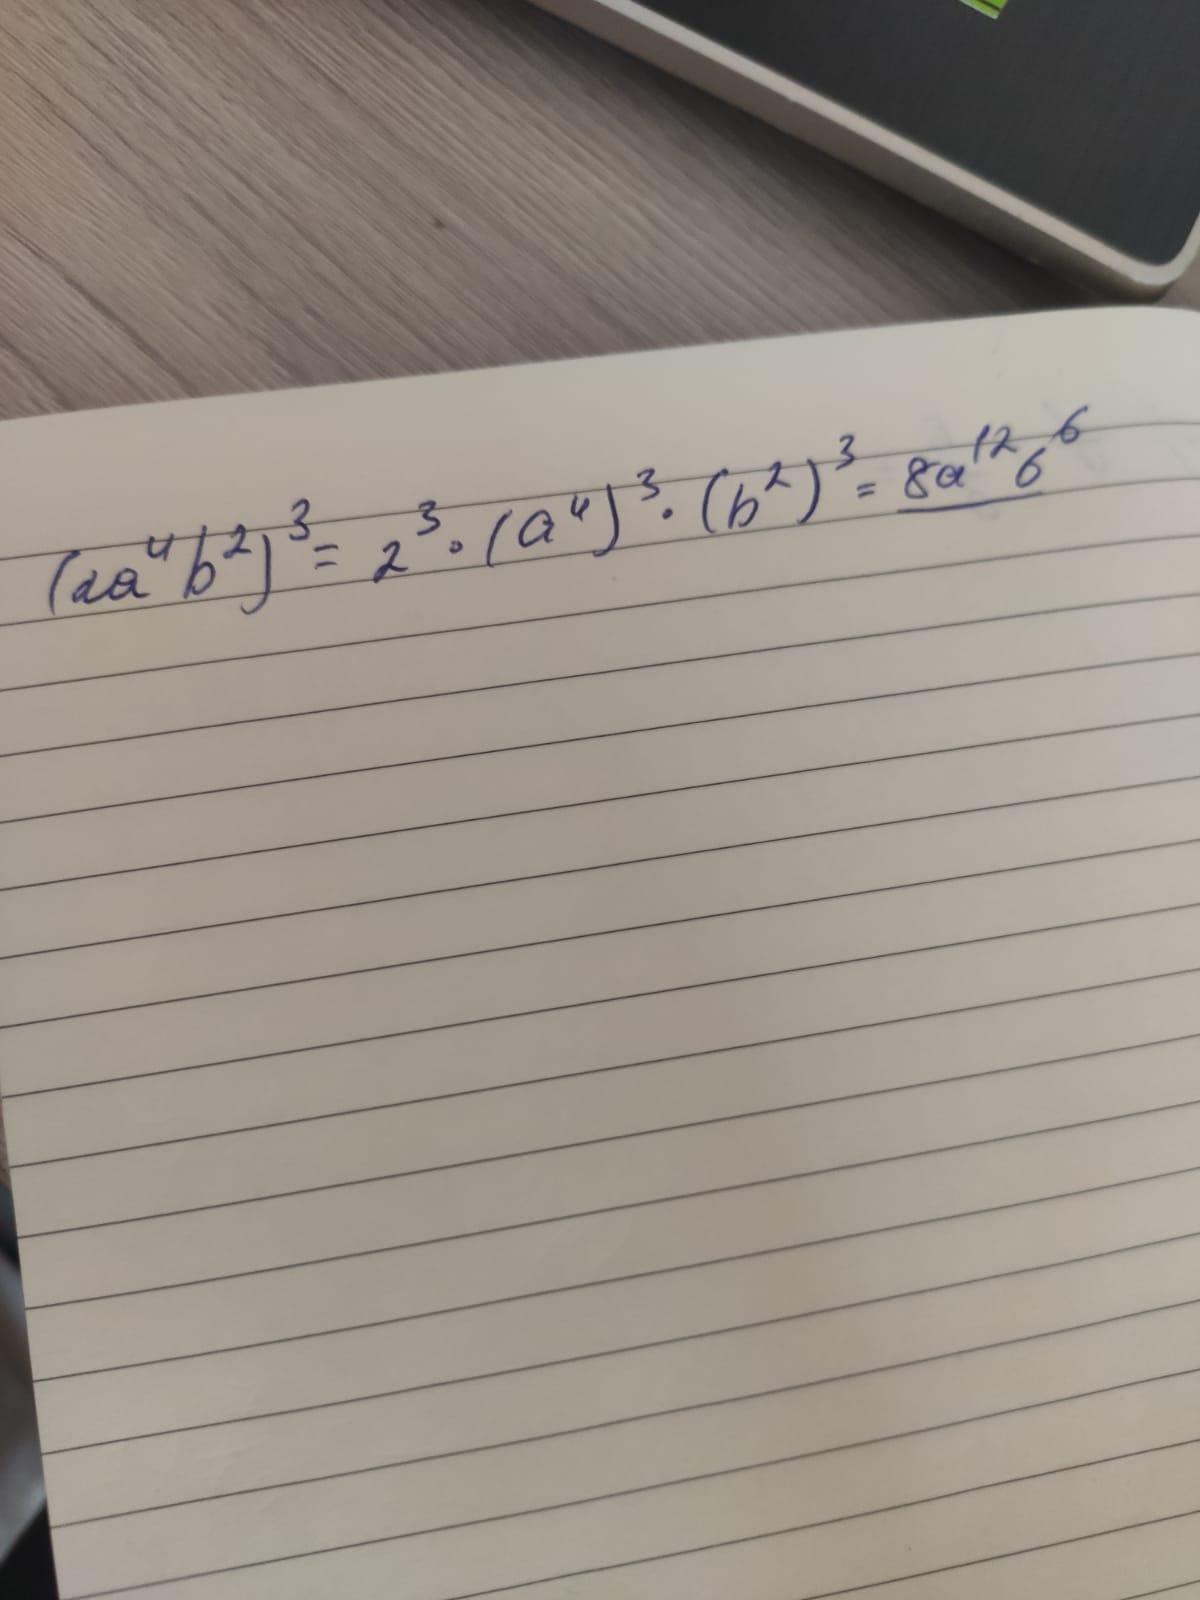 (2a⁴b²)³ = 2³ · (a⁴)³ · (b²)³ = 8a¹²b⁶